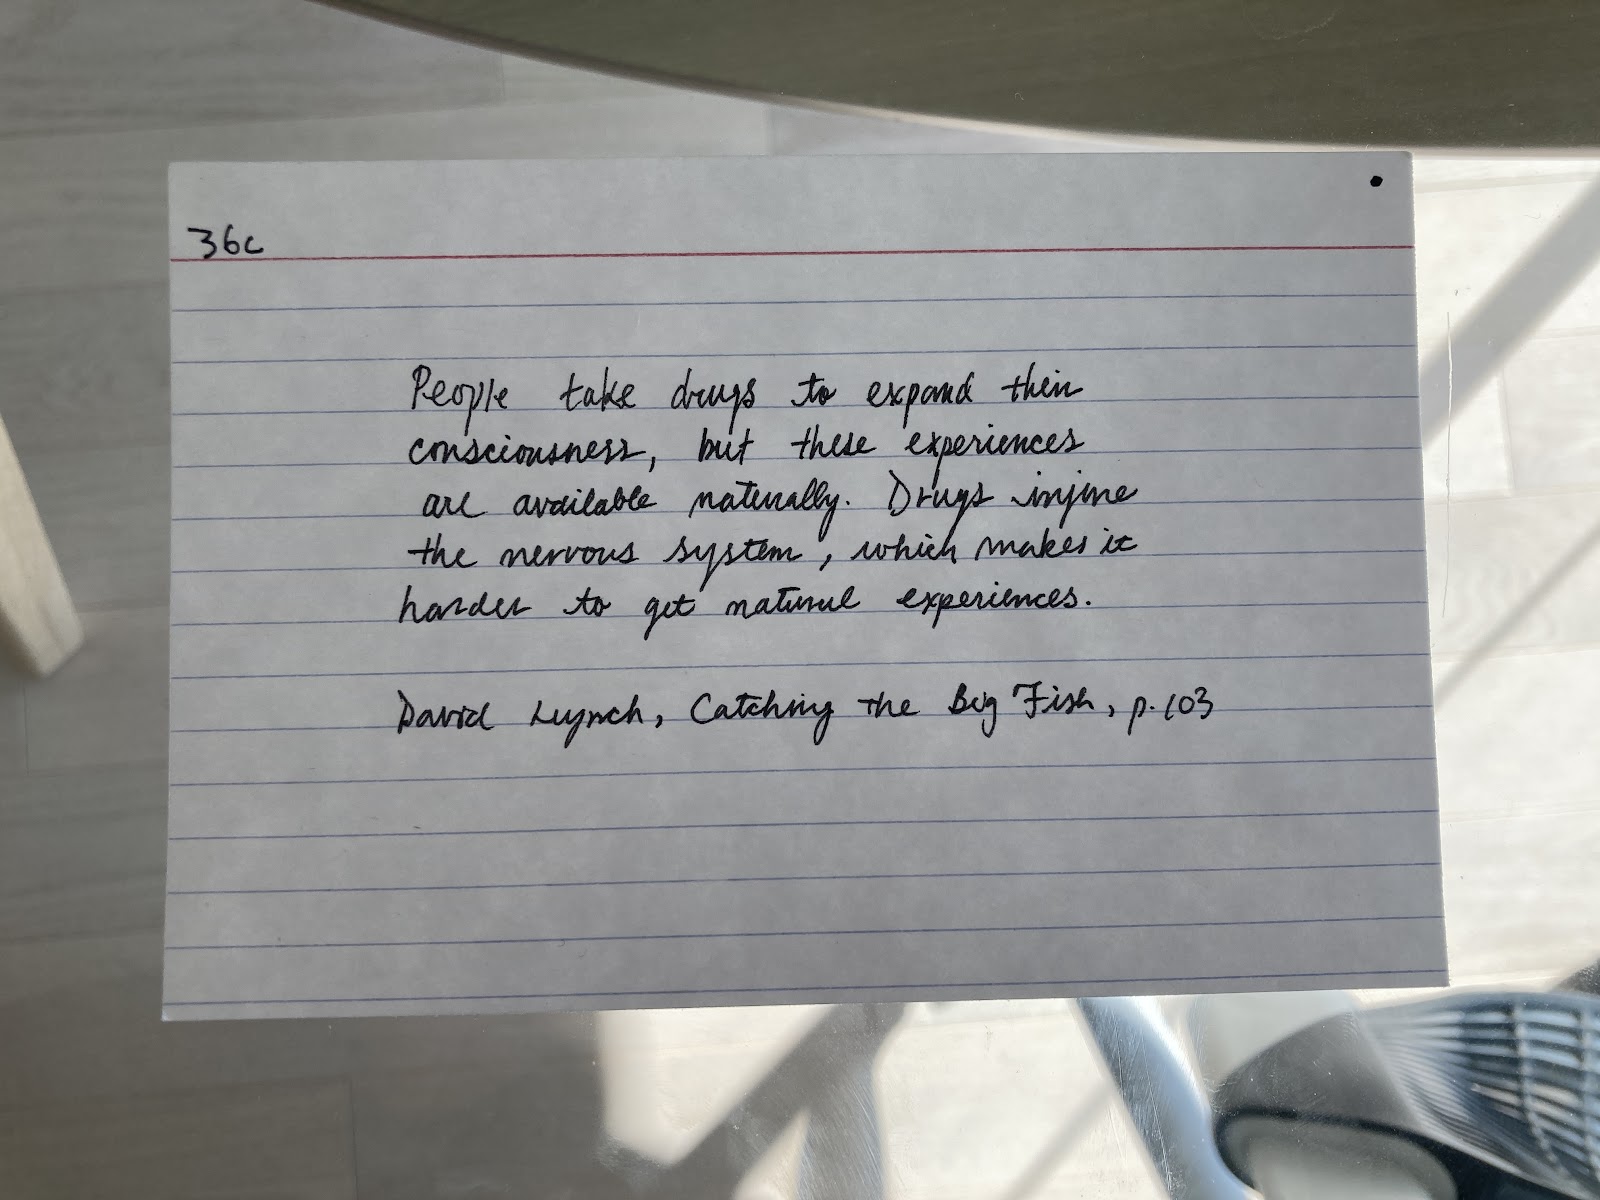 36c
People take drugs to expand their
consciousness, but these experiences
are available naturally. Drugs injure
the nervous system, which makes it
harder to get natural experiences.
David Lynch, Catching the Big Fish, p.103